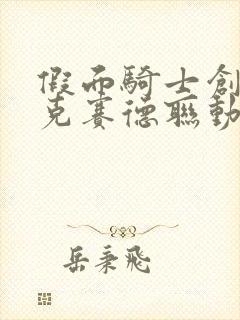 假面騎士創
克賽德聯動
岳秉飛